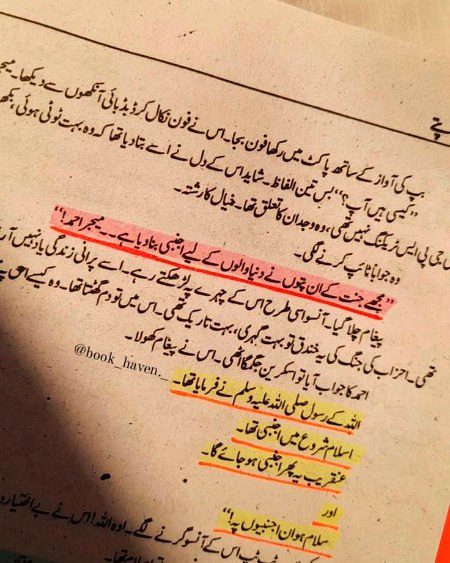 پتے
بپ کی آواز کے ساتھ پاکٹ میں رکھا فون بجا۔ اس نے فون نکال کر ڈبڈبائی آنکھوں سے دیکھا۔ میجر
”کیسی ہیں آپ؟“ بس تین الفاظ۔ شاید اس کے دل نے اسے بتا دیا تھا کہ وہ بہت ٹوٹی ہوئی،
جی پی ایس ٹریکنگ نہیں تھی، وہ وجدان کا تعلق تھا۔ خیال کا رشتہ۔
وہ جواباً ٹائپ کرنے لگی۔
”مجھے جنت کے ان پتوں نے دنیا والوں کے لیے اجنبی بنا دیا ہے۔۔۔ میجر احمد!“
پیغام چلا گیا۔ آنسو اسی طرح اس کے چہرے پہ لڑھکتے رہے۔ اسے پرانی زندگی یاد نہیں آ
تھی۔ احزاب کی جنگ کی یہ خندق تو بہت گہری، بہت تاریک تھی۔ اس میں تو دم گھٹتا تھا۔ وہ کیسے اس
احمد کا جواب آیا تو اسکرین جگمگا اٹھی۔ اس نے پیغام کھولا۔
@book_haven._
اللہ کے رسول صلی اللہ علیہ وسلم نے فرمایا تھا۔
اسلام شروع میں اجنبی تھا۔
عنقریب یہ پھر اجنبی ہو جائے گا۔
اور
سلام ہو ان اجنبیوں پہ!“
ٹپ ٹپ اس کے آنسو گرنے لگے۔ اوہ اللہ! اس نے بے اختیار